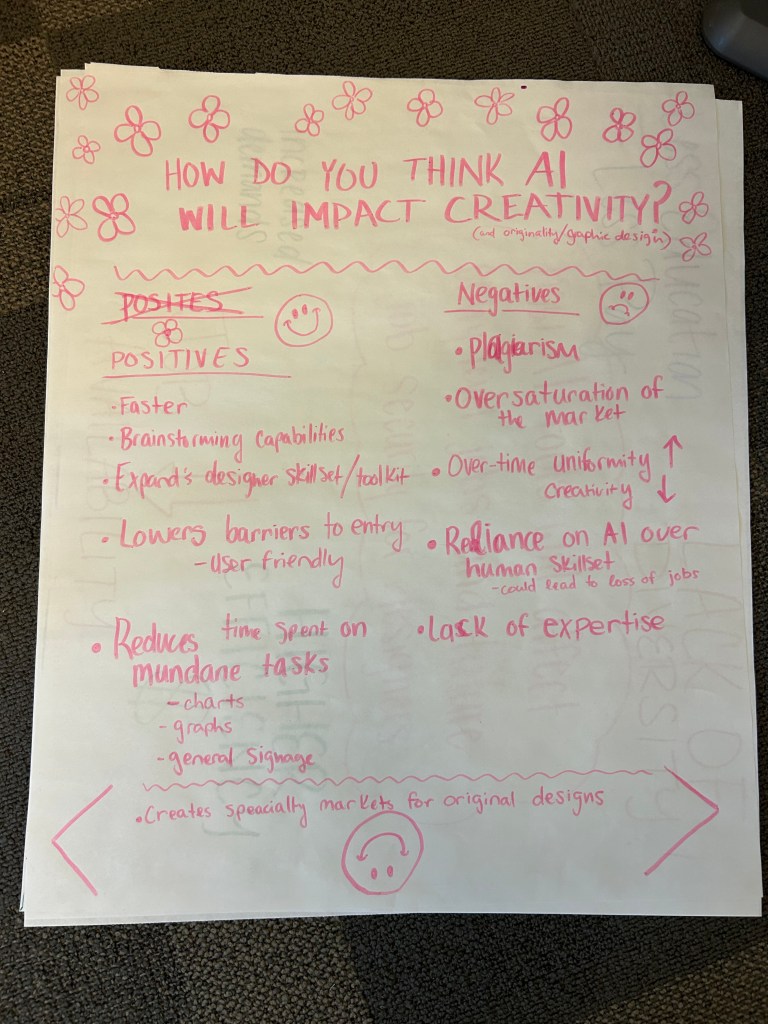 HOW DO YOU THINK AI
WILL IMPACT CREATIVITY?
(and originality/graphic design)
POSITES
POSITIVES
·Faster
·Brainstorming Capabilities
·Expand's designer skillset/toolkit
·Lowers barriers to entry
-User friendly
·Reduces time spent on
mundane tasks
-charts
-graphs
-general signage
Negatives
·Plagiarism
·Oversaturation of
the market
·Over-time Uniformity ↑
Creativity ↓
·Reliance on AI over
human skillset
-could lead to loss of jobs
·Lack of expertise
·Creates speacialty markets for original designs